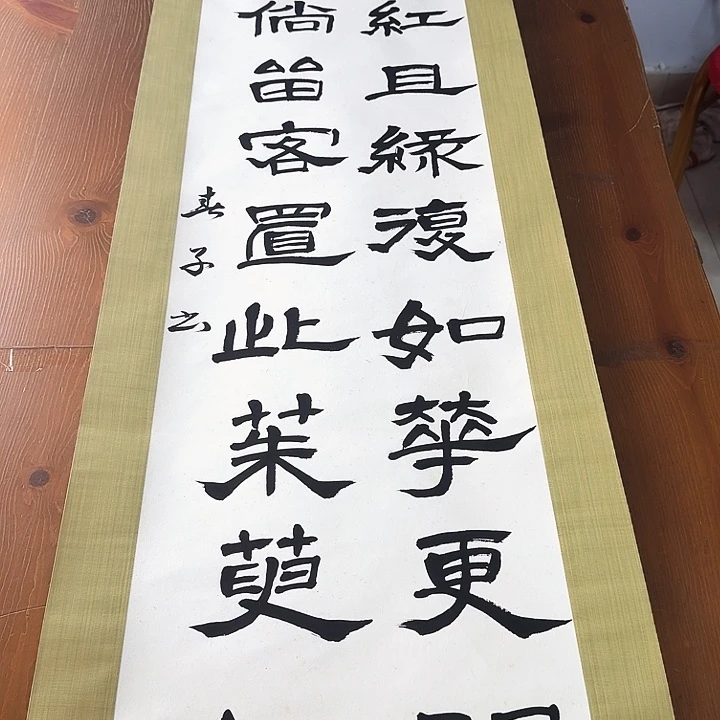 紅且綠復如華更
倘留客置此茱萸
春子书